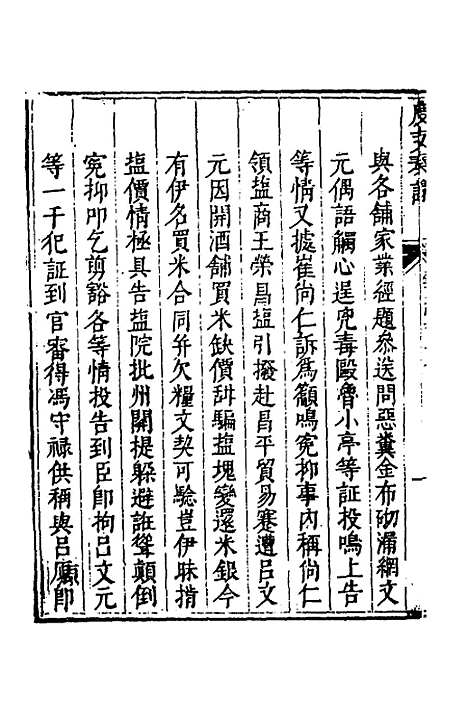 度支奏議
與各舖家業經題參送問惡糞金布砌漏網文
元偶語觸心逞兇毒毆魯小亭等証投鳴上告
等情又據崔尙仁訴爲籲鳴寃抑事內稱尙仁
領塩商王榮昌塩引撥赴昌平貿易蹇遭呂文
元因開酒舖買米缺價誆騙塩塊變還米銀今
有伊名買米合同并欠糧文契可驗豈伊昧揹
塩價情極具告塩院批州關提躱避誑聳顛倒
寃抑叩乞剪豁各等情投告到臣卽拘呂文元
等一干犯証到官審得馮守祿供稱與呂應卽